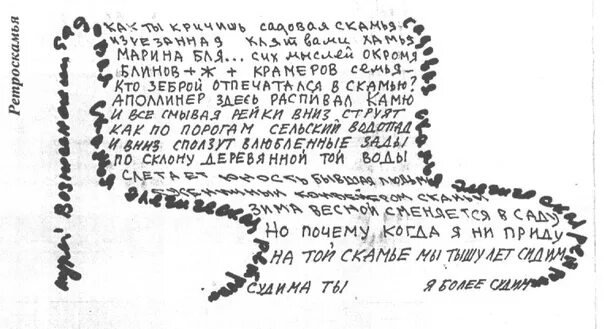 Ретроскамья
КАК ТЫ КРИЧИШЬ САДОВАЯ СКАМЬЯ
ИЗРЕЗАННАЯ КЛЯТВАМИ ХАМЬЯ
МАРИНА БЛЯ... СИХ МЫСЛЕЙ ОКРОМЯ
БЛИНОВ + Ж + КРАМЕРОВ СЕМЬЯ –
КТО ЗЕБРОЙ ОТПЕЧАТАЛСЯ В СКАМЬЮ?
АПОЛЛИНЕР ЗДЕСЬ РАСПИВАЛ КАМЮ
И ВСЕ СМЫВАЯ РЕЙКИ ВНИЗ СТРУЯТ
КАК ПО ПОРОГАМ СЕЛЬСКИЙ ВОДОПАД
И ВНИЗ СПОЛЗУТ ВЛЮБЛЕННЫЕ ЗАДЫ
ПО СКЛОНУ ДЕРЕВЯННОЙ ТОЙ ВОДЫ
СЛЕТАЕТ ЮНОСТЬ БЫВШАЯ ЛЮДЬМИ
КОНВЕЙЕРОМ СКАМЬИ
ЗИМА ВЕСНОЙ СМЕНЯЕТСЯ В САДУ
НО ПОЧЕМУ, КОГДА Я НИ ПРИДУ
НА ТОЙ СКАМЬЕ МЫ ТЫЩУ ЛЕТ СИДИМ
СУДИМА ТЫ Я БОЛЕЕ СУДИМ
садовая скамья
элегическая ретро